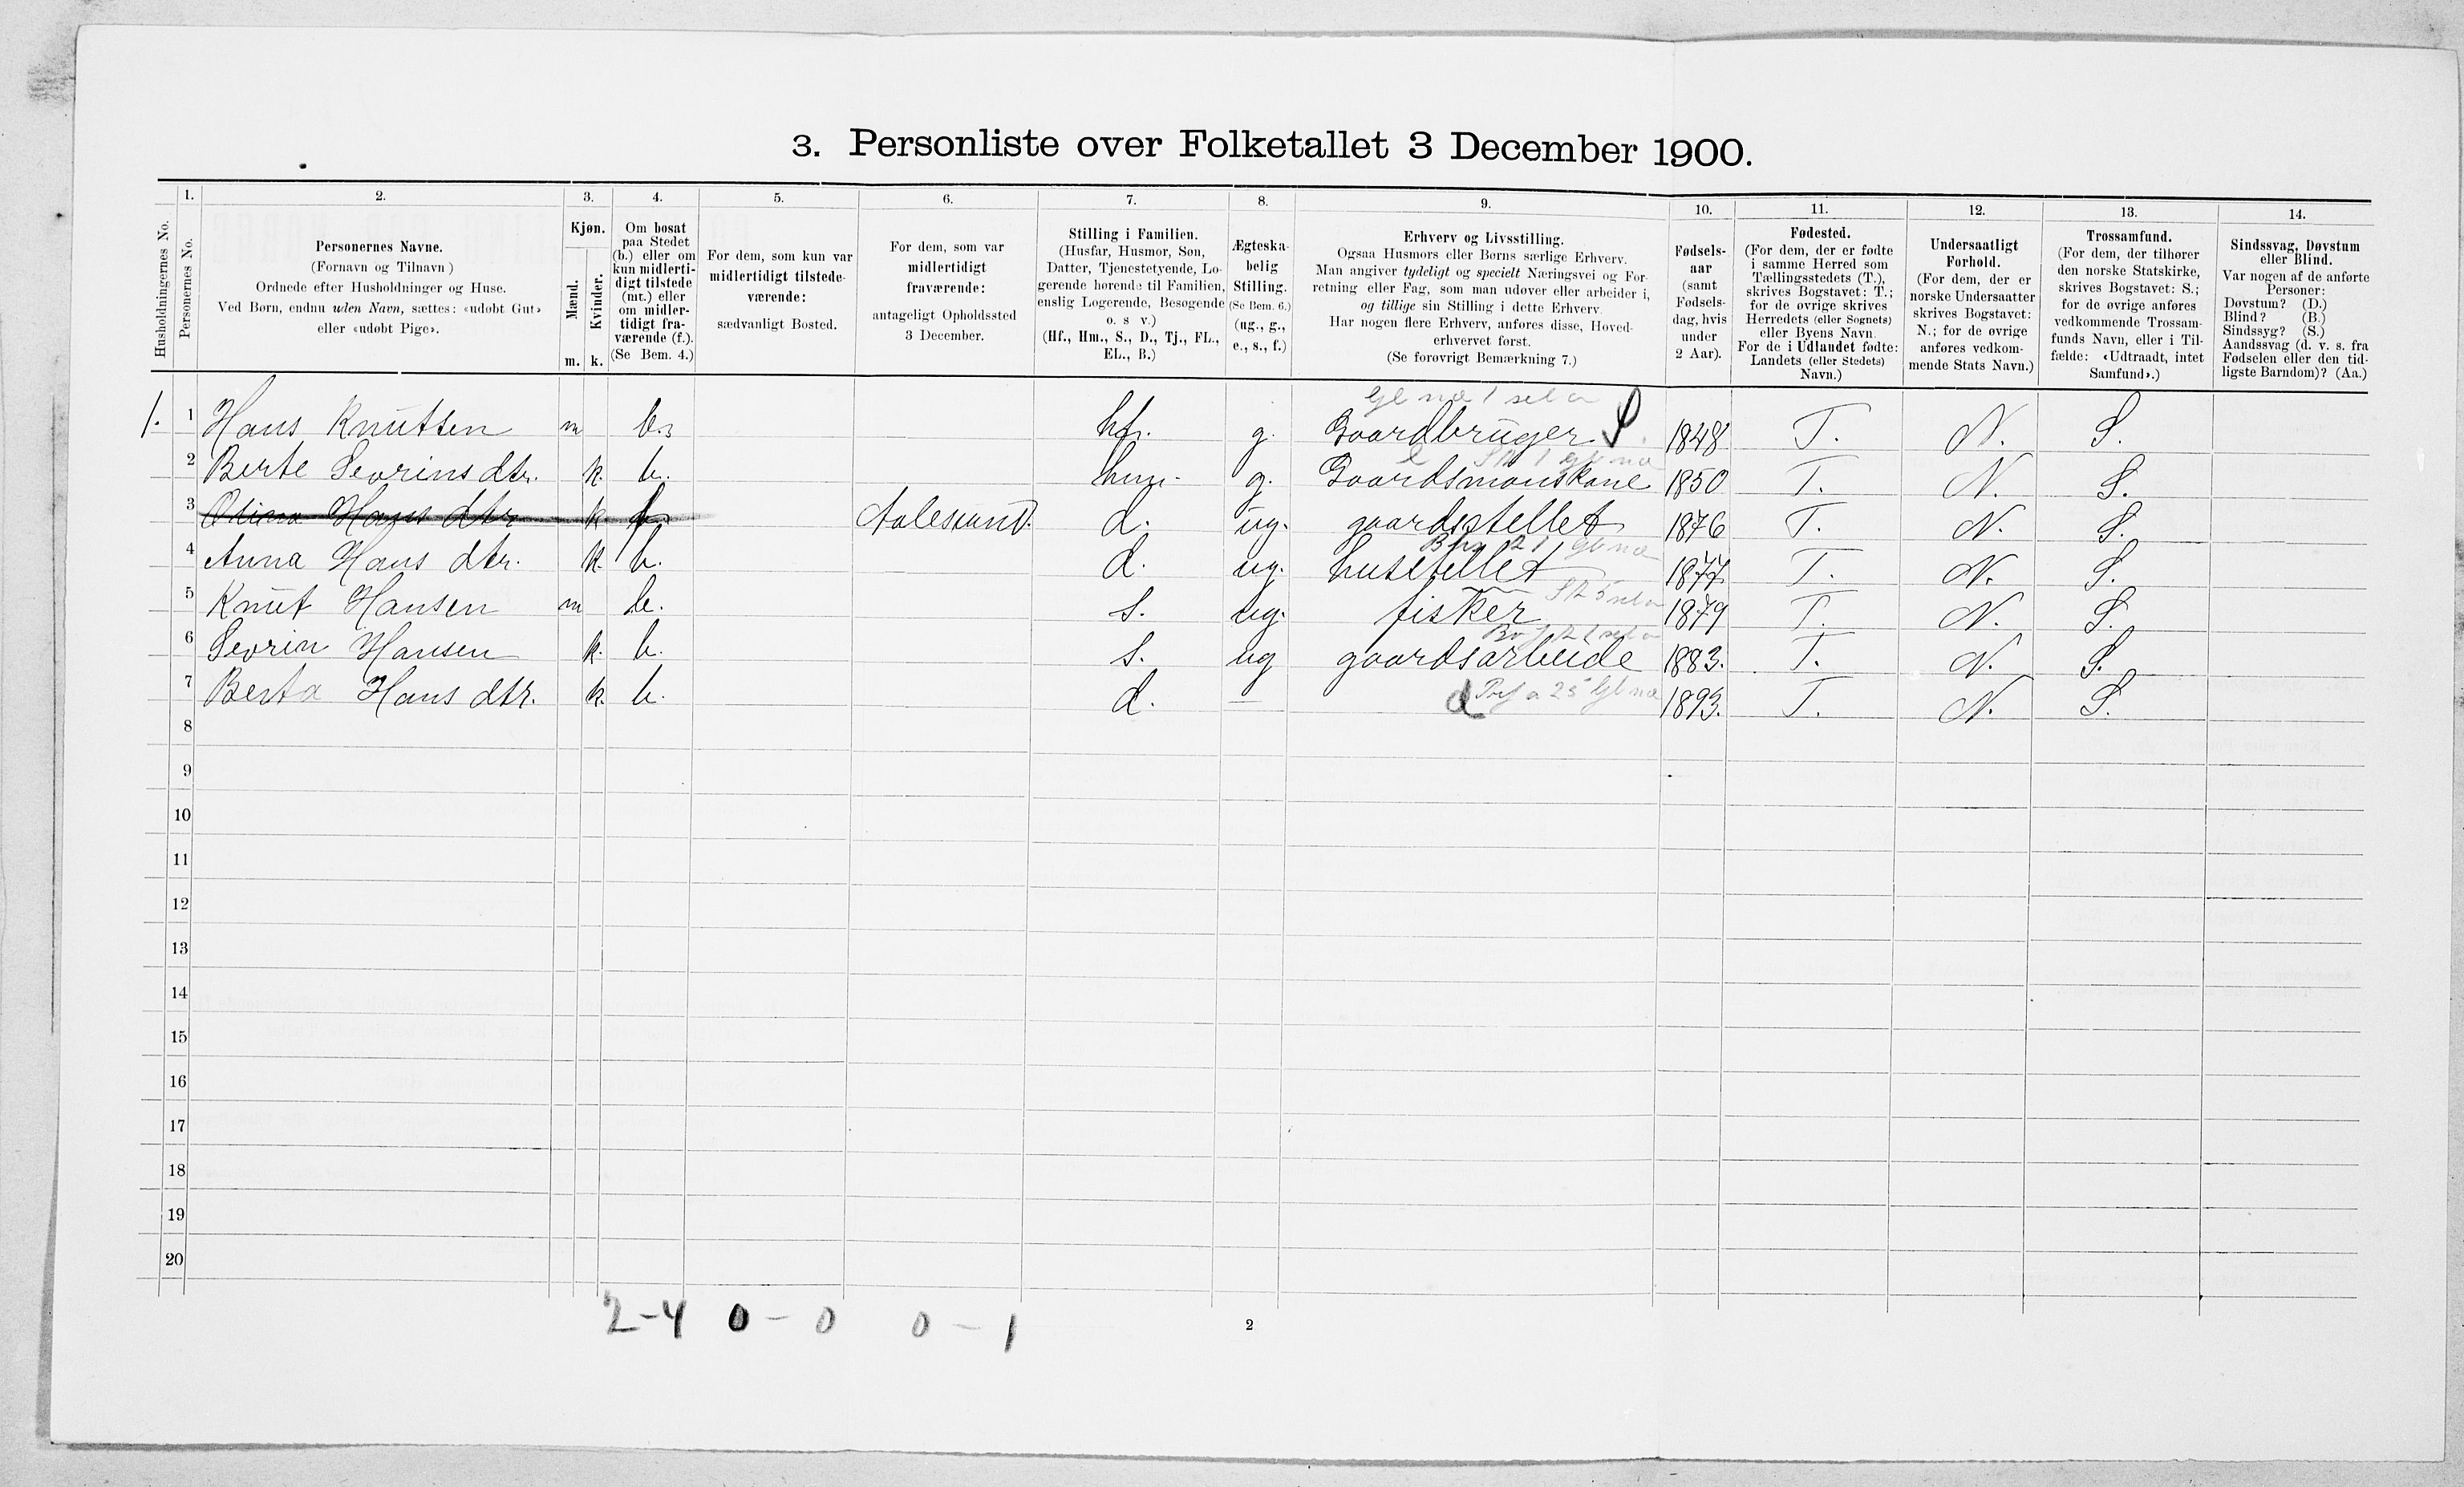 3. Personliste over Folketallet 3 December 1900.
1. 2. 3. 4. 5. 6. 7. 8. 9. 10. 11. 12. 13. 14.
Husholdningernes No.
Personernes No.
Personernes Navne.
(Fornavn og Tilnavn)
Ordnede efter Husholdninger og Huse.
Ved Børn, endnu uden Navn, sættes: «udøbt Gut»
eller «udøbt Pige».
Kjøn.
Mænd.
Kvinder.
m. k.
Om bosat
paa Stedet
(b.) eller om
kun midlerti-
digt tilstede
(mt.) eller
om midler-
tidigt fra-
værende (f.).
(Se Bem. 4.)
For dem, som kun var
midlertidigt tilstede-
værende:
sædvanligt Bosted.
For dem, som var
midlertidigt
fraværende:
antageligt Opholdssted
3 December.
Stilling i Familien.
(Husfar, Husmor, Søn,
Datter, Tjenestetyende, Lo-
gerende hørende til Familien,
enslig Logerende, Besøgende
o. s v.)
(Hf., Hm., S., D., Tj., FL.,
EL., B.)
Ægteska-
belig
Stilling.
(Se Bem. 6.)
(ug., g.,
e., s., f.)
Erhverv og Livsstilling.
Ogsaa Husmors eller Børns særlige Erhverv.
Man angiver tydeligt og specielt Næringsvei og For-
retning eller Fag, som man udøver eller arbeider i,
og tillige sin Stilling i dette Erhverv.
Har nogen flere Erhverv, anføres disse, Hoved-
erhvervet først.
(Se forøvrigt Bemærkning 7.)
Fødsels-
aar
(samt
Fødsels-
dag, hvis
under
2 Aar).
Fødested.
(For dem, der er fødte
i samme Herred som
Tællingsstedets (T.),
skrives Bogstavet: T.;
for de øvrige skrives
Herredets (eller Sognets)
eller Byens Navn
For de i Udlandet fødte:
Landets (eller Stedets)
Navn.)
Undersaatligt
Forhold.
(For dem, der er
norske Undersaatter
skrives Bogstavet:
N.; for de øvrige
anføres vedkom-
mende Stats Navn.)
Trossamfund.
(For dem, der tilhører
den norske Statskirke,
skrives Bogstavet: S.;
for de øvrige anføres
vedkommende Trossam-
funds Navn, eller i Til-
fælde: «Udtraadt, intet
Samfund».)
Sindssvag, Døvstum
eller Blind.
Var nogen af de anførte
Personer:
Døvstum? (D.)
Blind? (B.)
Sindssyg? (S.)
Aandssvag (d. v. s. fra
Fødselen eller den tid-
ligste Barndom)? (Aa.)
1. 1 Hans Knutsen m b. hf. g. Gaardbruger S 1848 T. N. S.
2 Berte Sevrinsdtr. k. b. hm. g. Gaardsmanskone 1850 T. N. S.
3 Olina Hansdtr k. Aalesund. d. ug. gaardsstellet 1876 T. N. S.
4 Anna Hansdtr. k. b. d. ug. husstellet 1877 T. N. S.
5 Knut Hansen m b. s. ug. fisker 1879 T. N. S.
6 Sevrin Hansen k. b. s. ug gaardsarbeide 1883. T. N. S.
7 Berta Hansdtr. k. b. d. — d 1893. T. N. S.
8
9
10
11
12
13
14
15
16
17
18
19
20
2-4 0-0 0-1
2